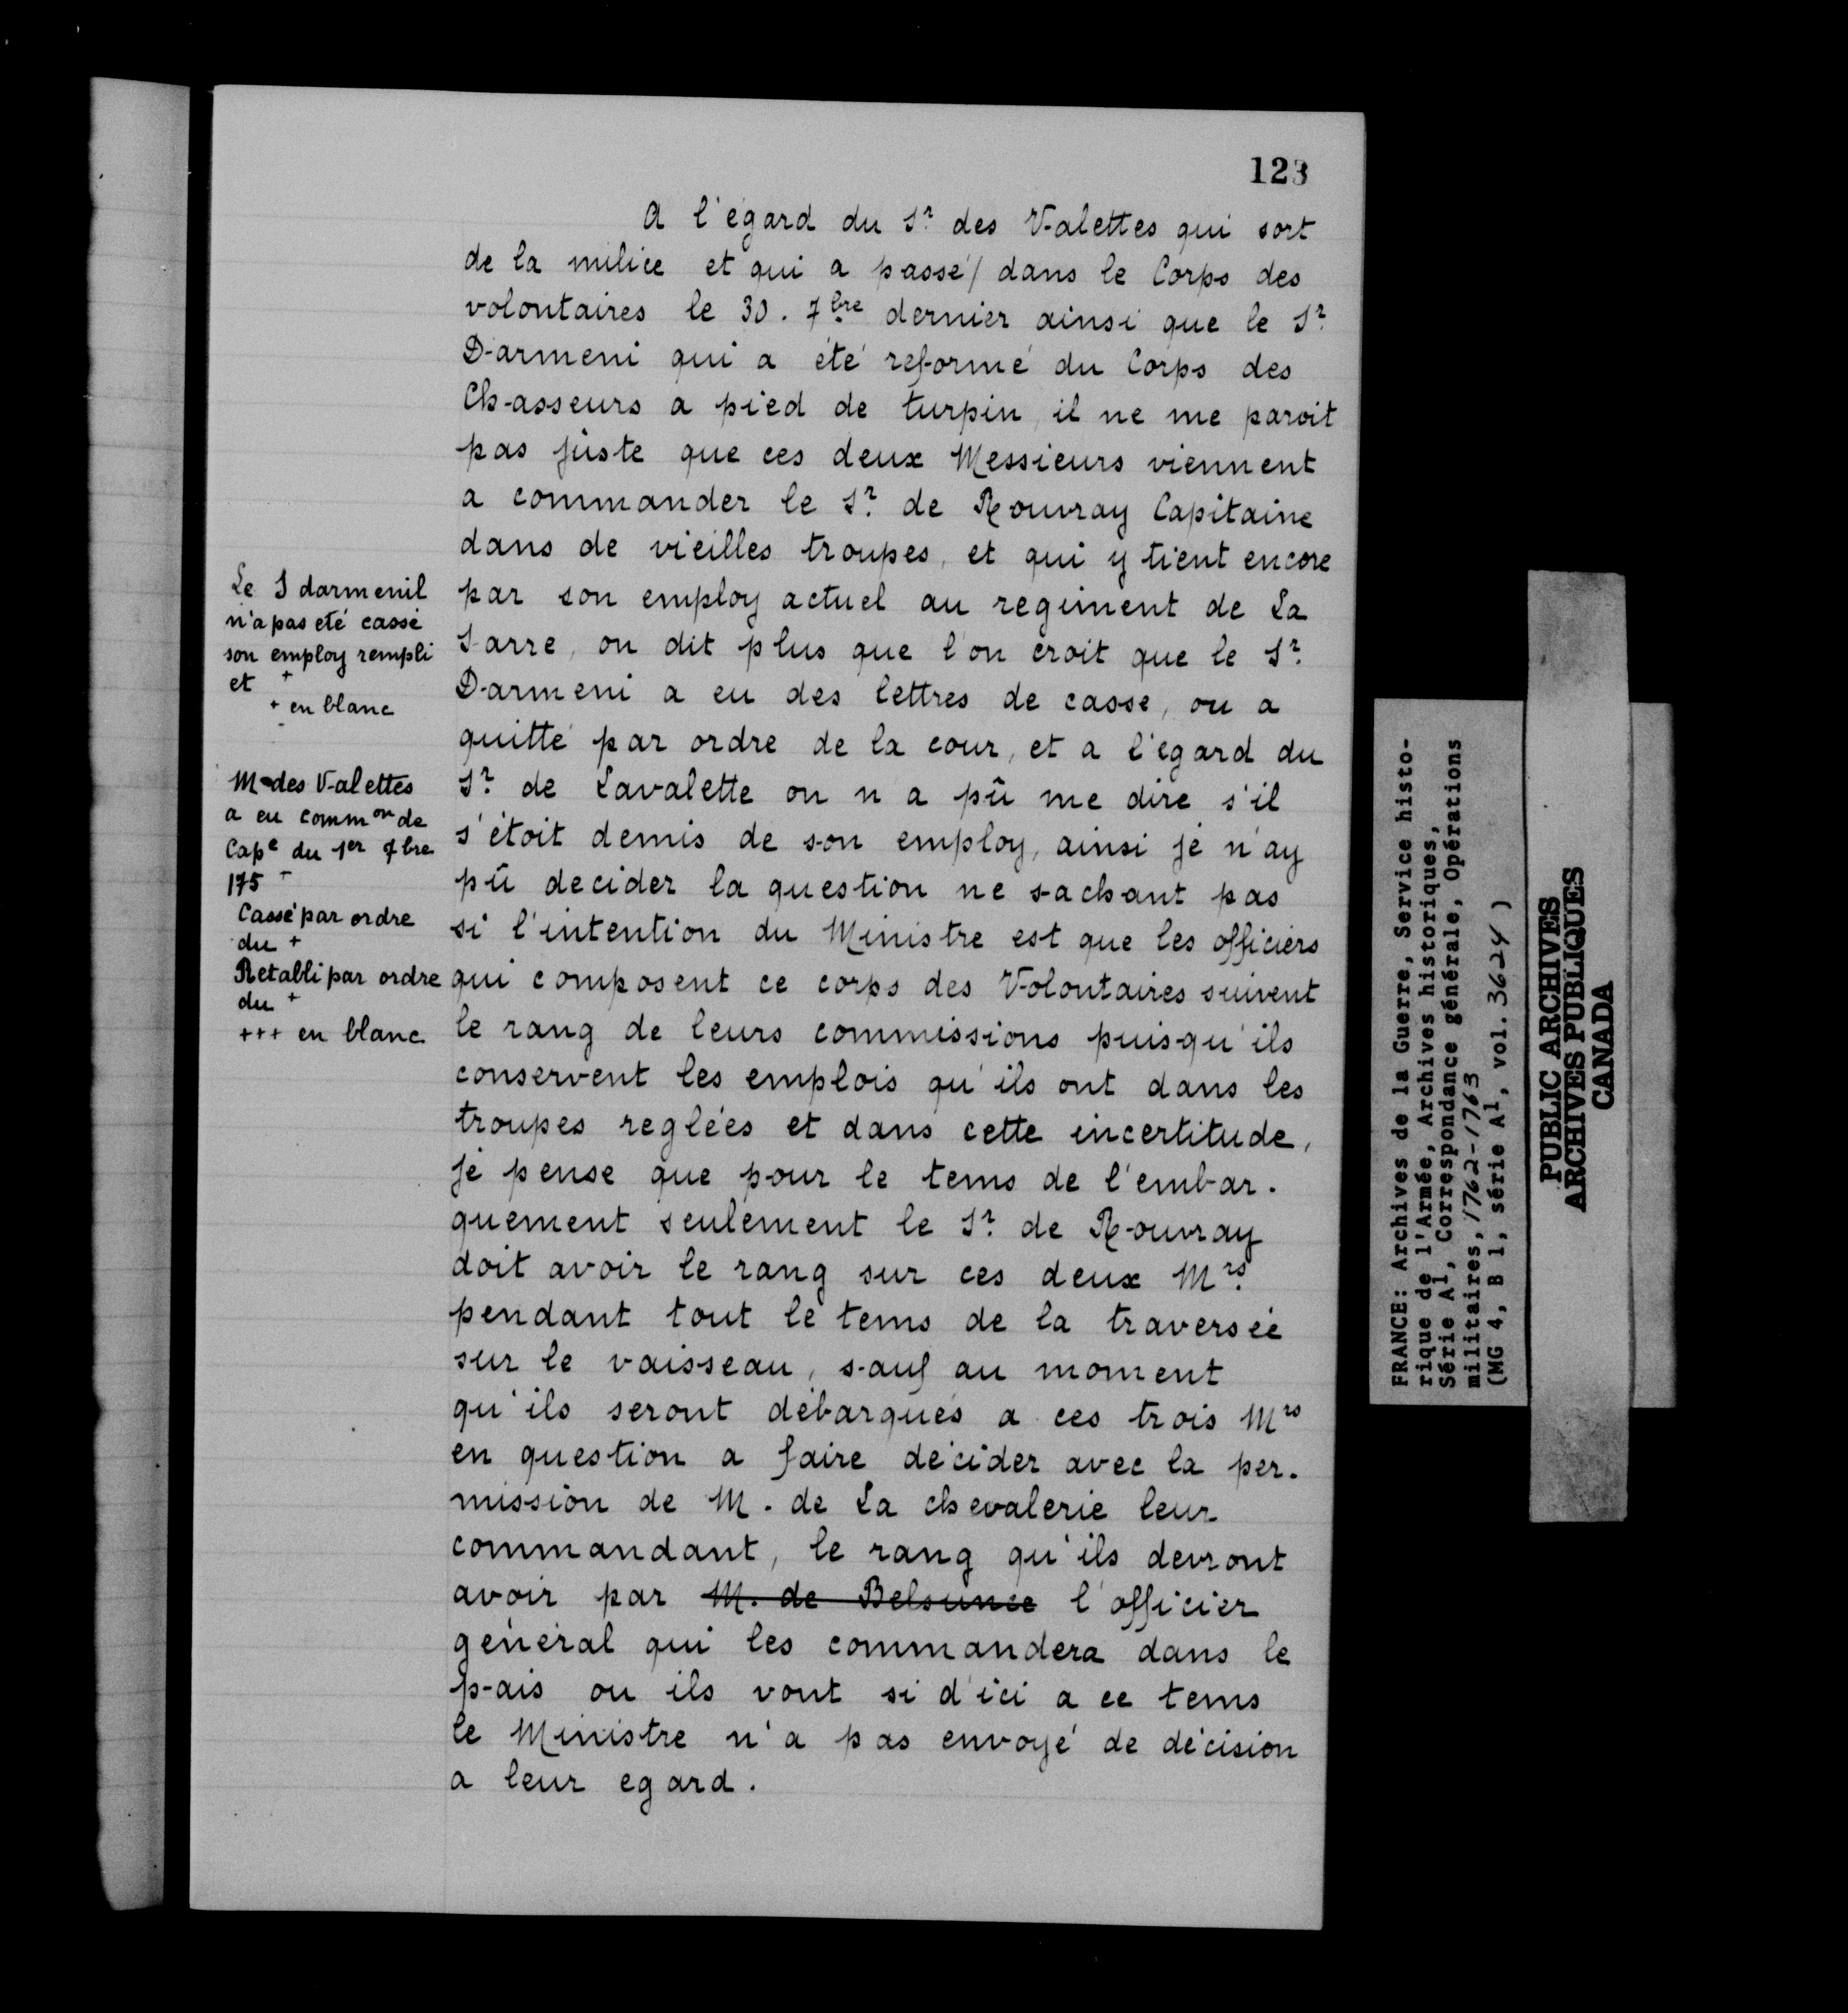 123
A l'égard du Sr. des Valettes qui sort
de la milice et qui a passé/ dans le Corps des
volontaires le 30. 7bre dernier ainsi que le Sr.
Darmeni qui a été reformé du Corps des
Chasseurs a pied de turpin, il ne me paroit
pas juste que ces deux Messieurs viennent
a commander le Sr. de Rouvray Capitaine
dans de vieilles troupes, et qui y tient encore
par son employ actuel au regiment de La
Sarre, on dit plus que l'on croit que le Sr.
Darmeni a eu des lettres de casse, ou a
quitté par ordre de la cour, et a l'égard du
Sr. de Lavalette on n a pû me dire s'il
s'étoit demis de son employ, ainsi je n'ay
pû decider la question ne sachant pas
si l'intention du Ministre est que les officiers
qui composent ce corps des Volontaires suivent
le rang de leurs commissions puisqu'ils
conservent les emplois qu'ils ont dans les
troupes reglées et dans cette incertitude,
je pense que pour le tems de l'embar-
quement seulement le Sr. de Rouvray
doit avoir le rang sur ces deux Mrs.
pendant tout le tems de la traversée
sur le vaisseau, sauf au moment
qu'ils seront débarqués a ces trois Mrs
en question a faire décider avec la per-
mission de M. de La chevalerie leur
commandant, le rang qu'ils devront
avoir par M. de Belsunce l'officier
général qui les commandera dans le
pais ou ils vont si d'ici a ce tems
le Ministre n'a pas envoyé de décision
a leur egard.
Le S darmenil
n'a pas eté cassé
son employ rempli
et +
+ en blanc
M des Valettes
a eu common de
Cape du 1er 9bre
175 -
Cassé par ordre
du +
Retabli par ordre
du +
+++ en blanc
FRANCE: Archives de la Guerre, Service histo-
rique de l'Armée, Archives historiques,
Série A1, Correspondance générale, Opérations
militaires, 1762-1763
(MG 4, B 1, série A1, vol. 3624 )
PUBLIC ARCHIVES
ARCHIVES PUBLIQUES
CANADA